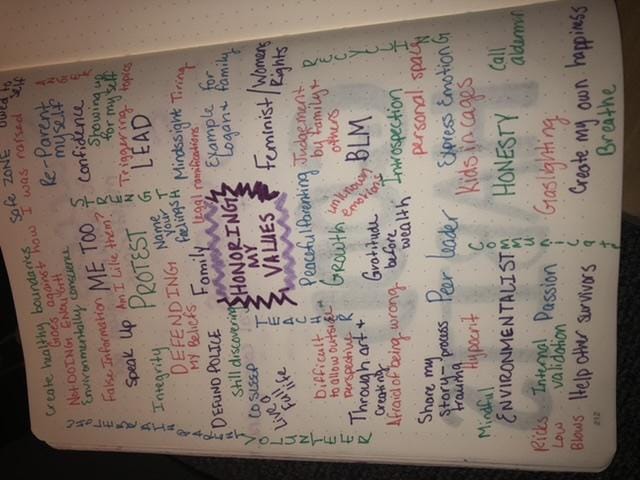 Safe zone
owed to
self
Create healthy boundaries
Goes against how
I was raised
Re-Parent
myself
ANGER
Not DOING ENOUGH
Environmentally conscious
Confidence
Showing up
for myself
False Information
ME TOO
STRENGTH
Triggering topics
Speak Up
Am I Like them?
PROTEST
LEAD
Integrity
Name
your
feelings
Mindsight
Tiring
DEFENDING
My Beliefs
Family
Legal ramifications
Example for
Logan + family
DEFUND POLICE
Still discovering
HONORING
MY
VALUES
Feminist / Womens
Rights
CO SLEEP
Live a
Full life
TEACHER
Peaceful Parenting
Judgement
by family +
others
RECYCLING
VOLUNTEER
Difficult
to allow outside
perspective
Growth
unknown
emotions!
BLM
Through art +
Creating
Gratitude
before
wealth
Introspection
Afraid of being wrong
personal space
Share my
story-process
trauma
Peer leader
Express Emotion
Mindful
Hypocrit
Kids in cages
Call
alderman
ENVIRONMENTALIST
HONESTY
Ricks
Low
Blows
Internal
validation
Passion
Gaslighting
Help other survivors
Create my own happiness
Breathe